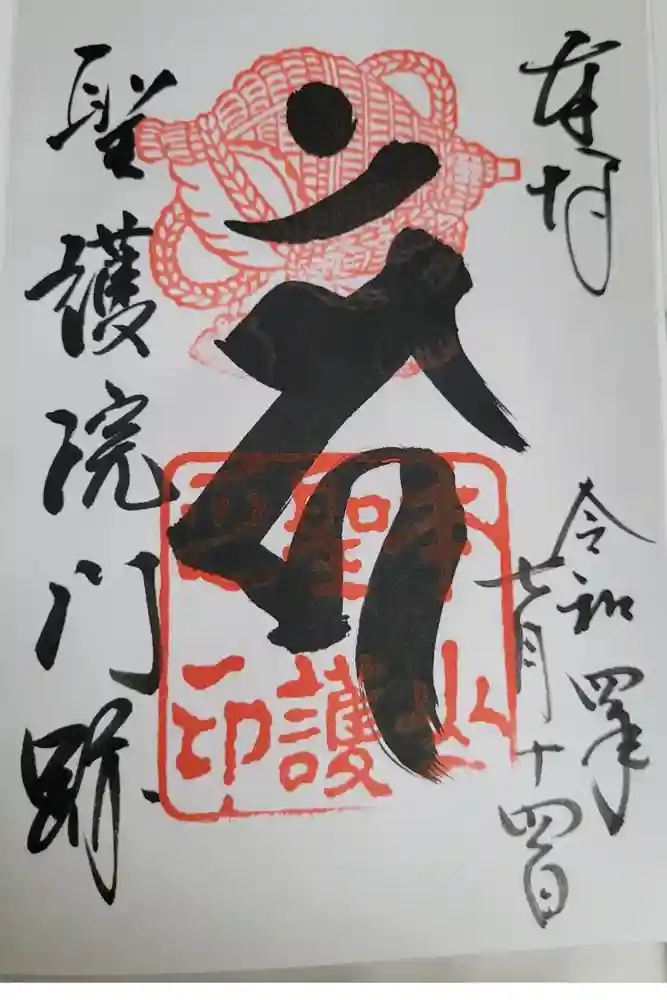 奉拝
令和四年
七月十四日
本山
聖護
院印
聖護院門跡